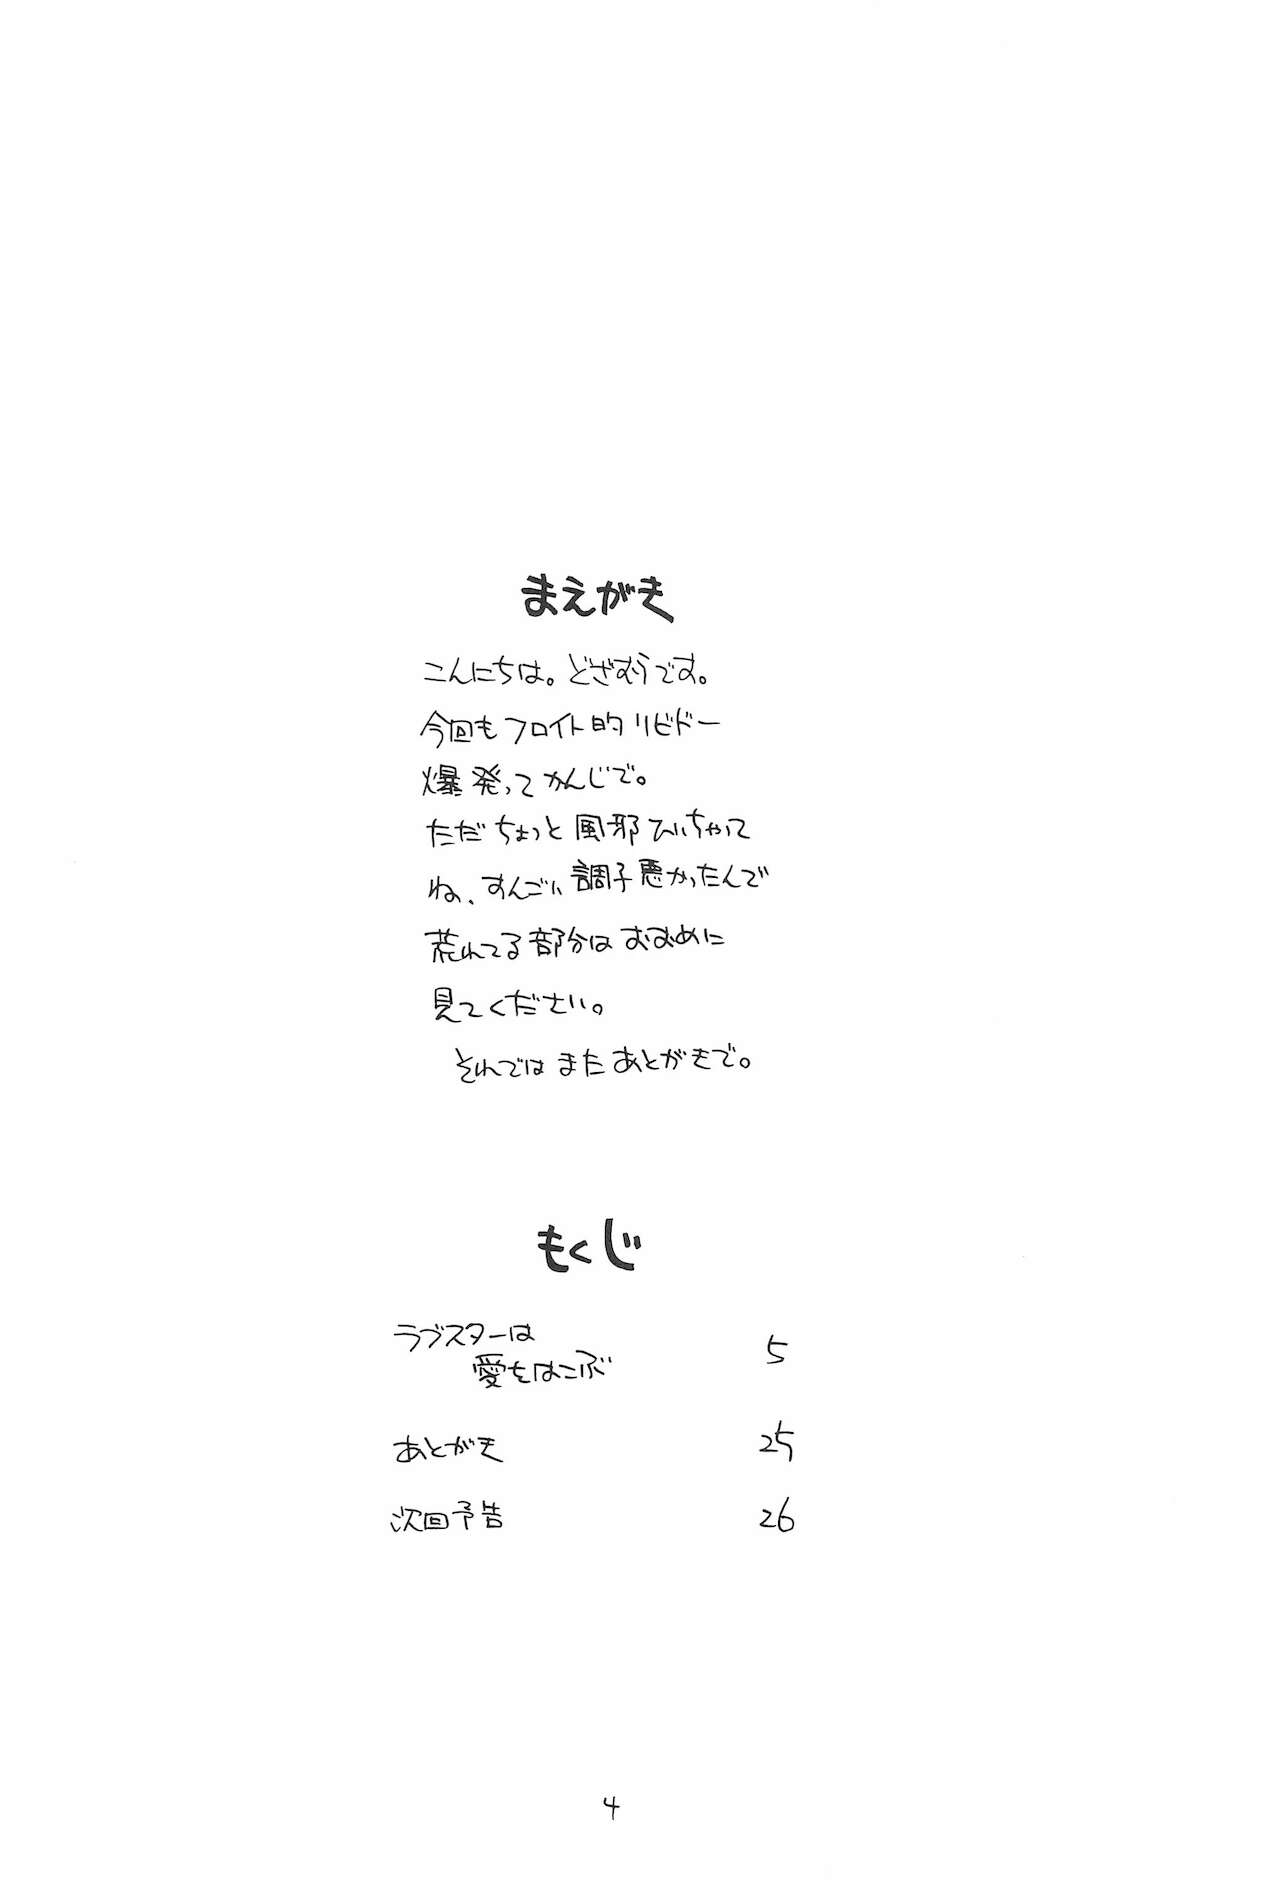 まえがき
こんにちは。どざむらです。
今回もフロイト的リビドー
爆発ってかんじで。
ただちょっと風邪ひいちゃって
ね、すんごい調子悪かったんで
荒れてる部分はおおめに
見てください。
それではまたあとがきで。
もくじ
ラブスターは
愛をはこぶ 5
あとがき 25
次回予告 26
4